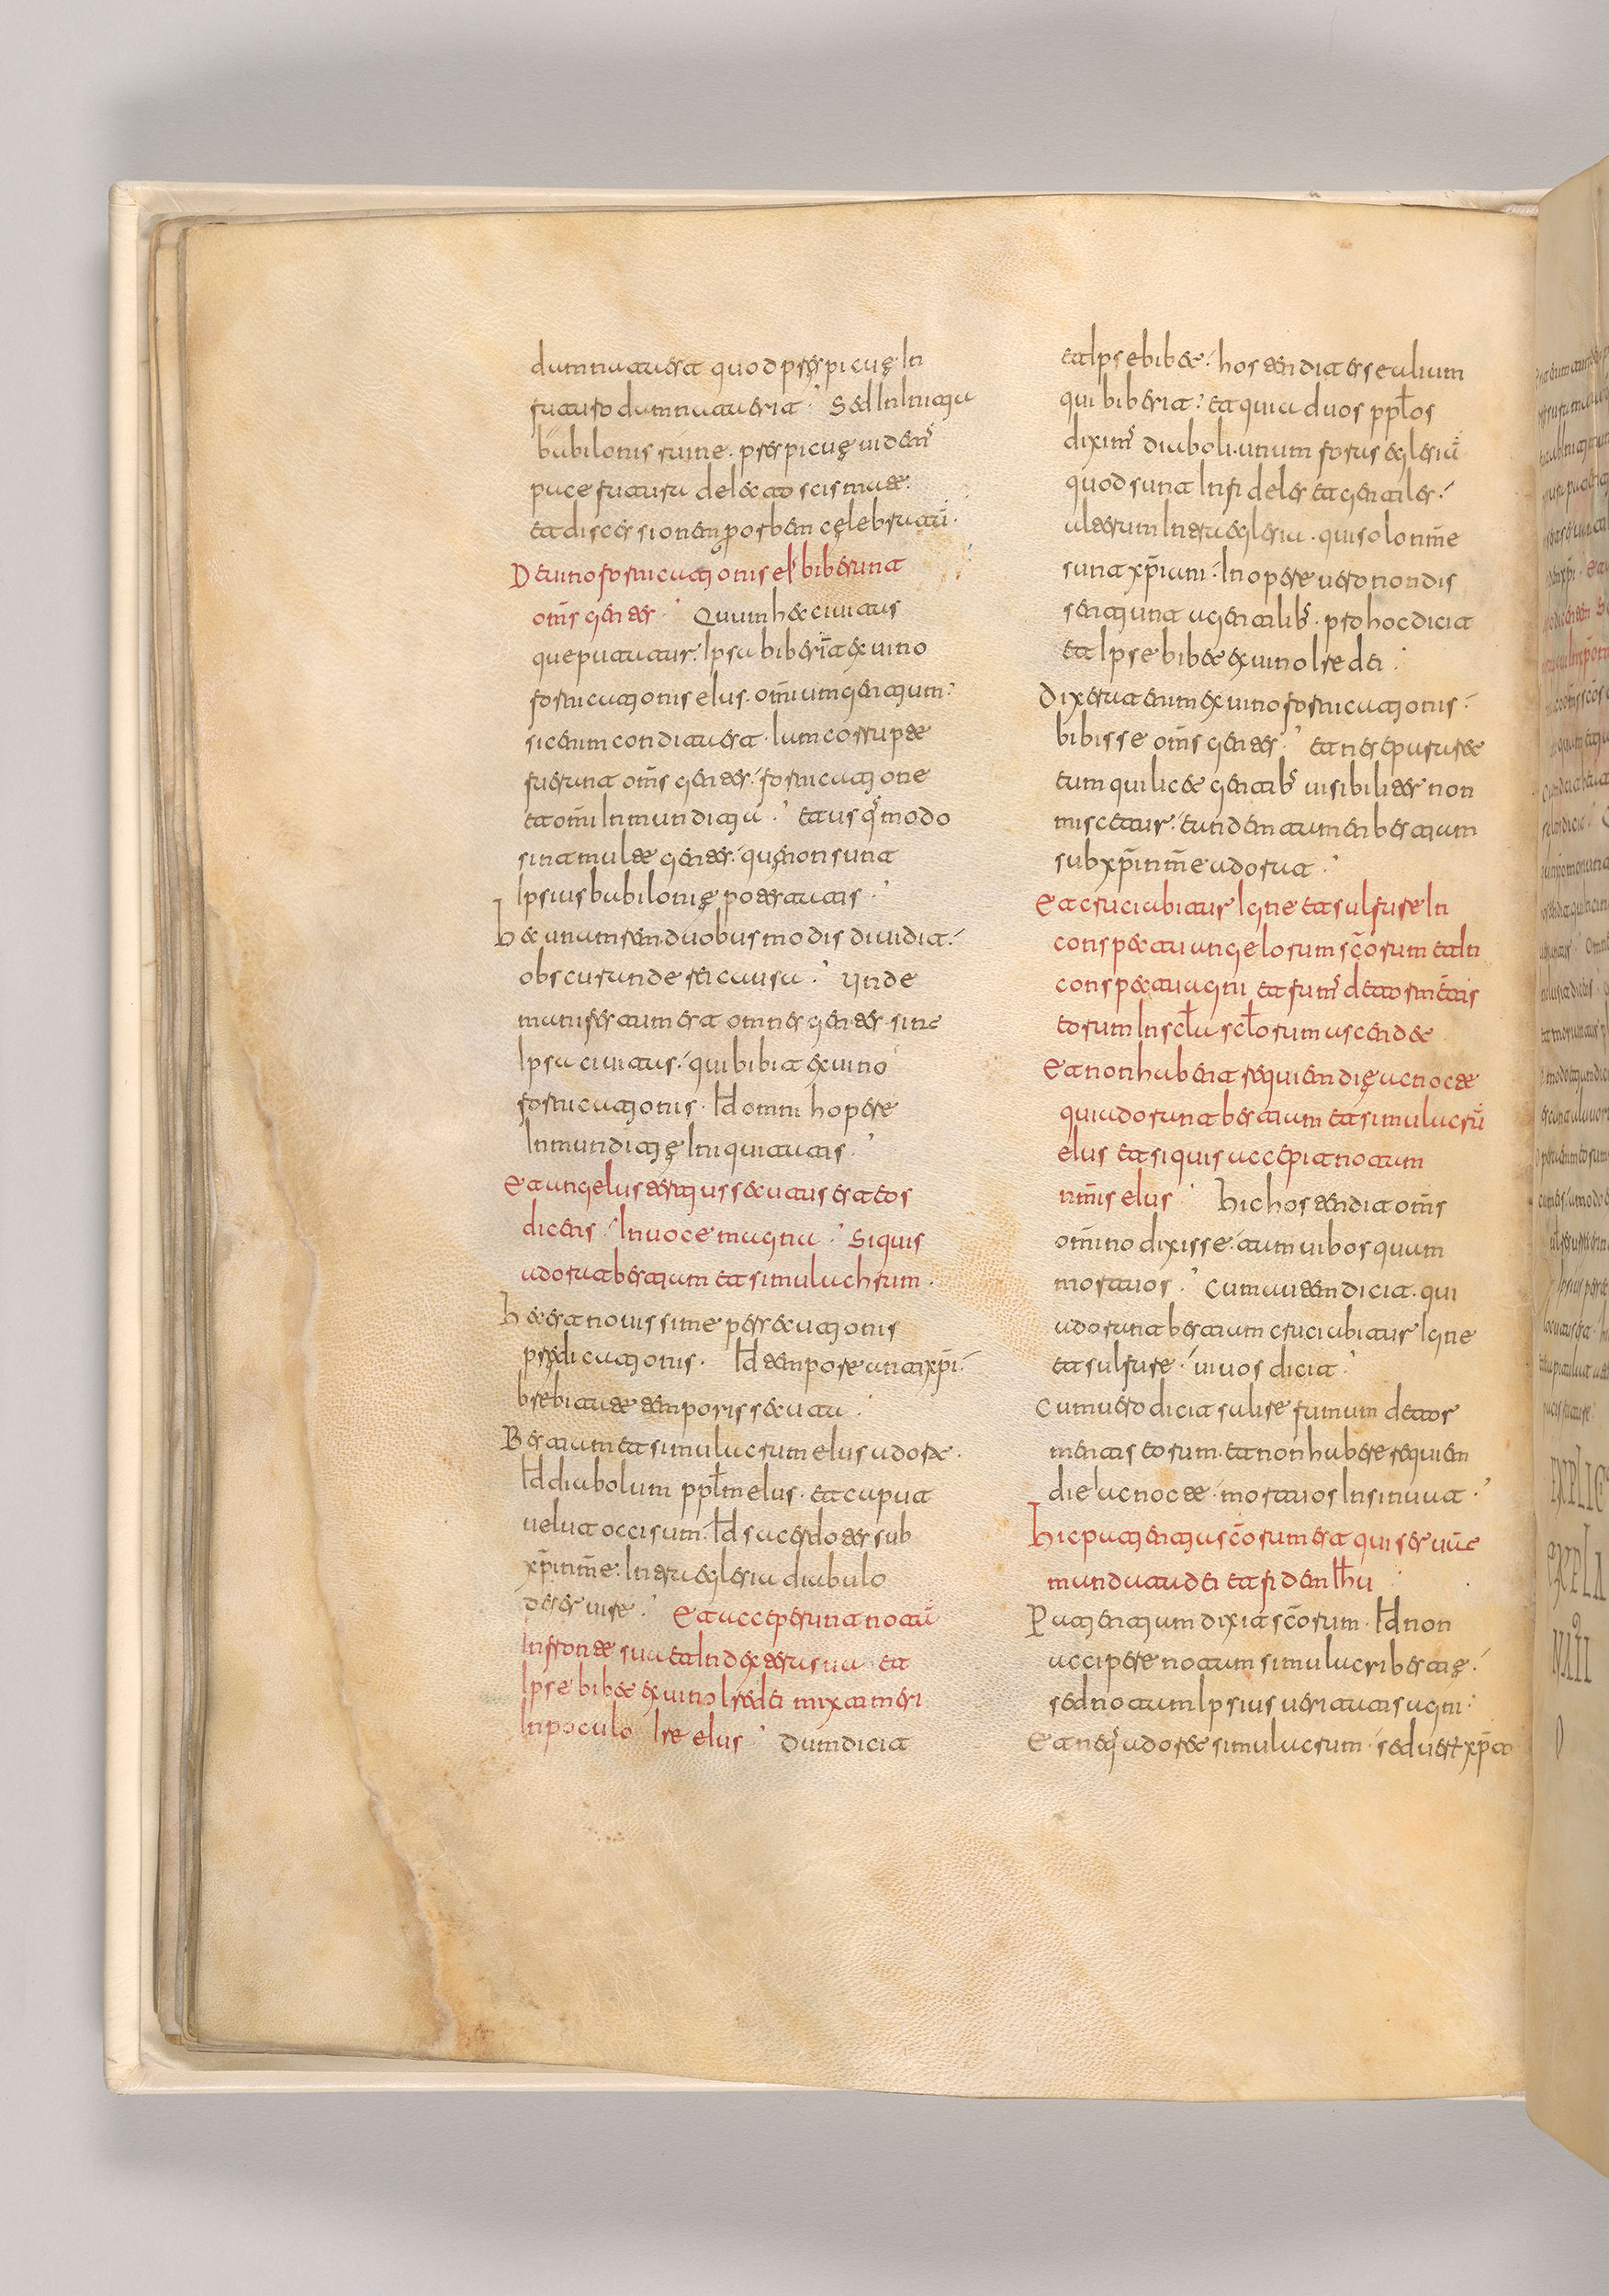 damnata est quod perspicuę in
futuro damnata erit. Sed in initia
babilonis ruine. perspicuę uidem̅
pace futura delectat scismate.
et discessionem ꝑ orbem cęlebrata̅.
De uino fornicationis ei' biberunt
om̅s gentes. Quum hec ciuitas
que putatur. ipsa biberit ex uino
fornicationis eius. om̅ium gentium.
sic enim condita est. iam corrupte
fuerunt om̅s gentes. fornicatione
et om̅i inmunditia. et usq̅ modo
sint multe gentes. quę non sunt
ipsius babilonię potestatis.
hec unam rem. duobus modis diuidit.
obscurande rei causa. Unde
manifestum est omnes gentes. sine
ipsa ciuitas. qui bibit ex uino
fornicationis. Id omni hopere
inmunditię iniquitatis.
Et angelus tertius secutus est eos
dicens. in uoce magna. Si quis
adorat bestium et simulachrum.
hec est nouissime persecutionis
prędicationis. Id tempore antxp̅i.
brebitate temporis secuta.
Bestium et simulacrum eius adorate.
Id diabolum pp̅lm eius. et caput
uelut occisum. Id sacerdotes sub
xp̅i nm̅e. intra eglesia diabolo
deseruire. Et acceperunt nota̅
in fronte sua et in dextera sua et
ipse bibet ex uino ire dei mixti meri
in poculo ire eius. Dum dicit
et ipse bibet. hos tendit esse alium
qui biberit. et quia duos pp̅los
dixim̅ diaboli. unum foras eglesia̅
quod sunt infideles et gentiles.
alterum intra eglesia. qui solo nm̅e
sunt xp̅iani. in opere uero non dis
sentiunt a gentilib̅. pro hoc dicit
et ipse bibet ex uino ire dei.
Dixerat enim ex uino fornicationis.
bibisse om̅s gentes. et ne separaret
eum qui licet gentilib̅ uisibiliter non
miscetur. eundem tamen bestium
sub xp̅i nm̅e adorat.
Et cruciabitur igne et sulfure in
conspectu angelorum sc̅orum et in
conspectu agni et fum̅ de torm̅tis
eorum in scl̅a scl̅orum ascendet
Et non habent requiem dię ac nocte
qui adorant bestium et simulacru̅
eius et si quis accepit notam
nm̅is eius. hic hos tendit om̅s
om̅ino dixisse. tam uibos quam
mortuos. Cum autem dicit. qui
adorant bestium cruciabitur igne
et sulfure. uiuos dicit.
Cum uero dicit salire fumum de tor
mentis eorum. et non habere requiem
die ac nocte. mortuos insinuat.
hic patientia sc̅orum est qui serua̅t
mandata dei et fidem Ihu
Patientium dixit sc̅orum. Id non
accipere notam simulacri bestię.
sed notam ipsius ueritatis agni.
Et neq̅ adoret simulacrum. sed